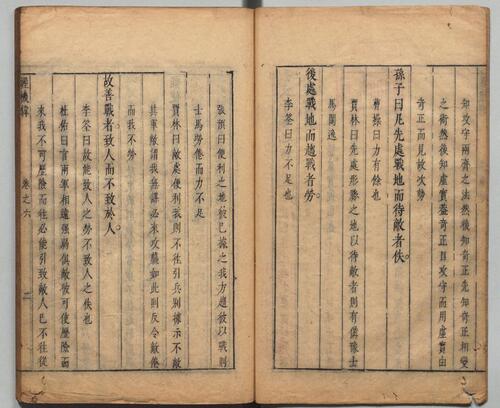 知攻守兩齊之法然後知奇正先知奇正相變
之術然後知虛實蓋奇正自攻守而用虛實由
奇正而見故次勢
孫子曰凡先處戰地而待敵者佚。
曹操曰力有餘也
賈林曰先處形勝之地以待敵者則有備豫士
馬閒逸
後處戰地而趨戰者勞。
李筌曰力不足也
張預曰便利之地彼已據之我方趨彼以戰則
士馬勞倦而力不足
賈林曰敵處便利我則不往引兵別據示不敵
其軍敵謂我無謀必來攻襲如此則反令敵倦
而我不勞
故善戰者致人而不致於人。
李筌曰故能致人之勞不致人之佚也
杜佑曰言兩軍相遠強弱俱敵彼可使歷險而
來我不可歷險而往必能引致敵人已不往從
機緯 卷之六 二